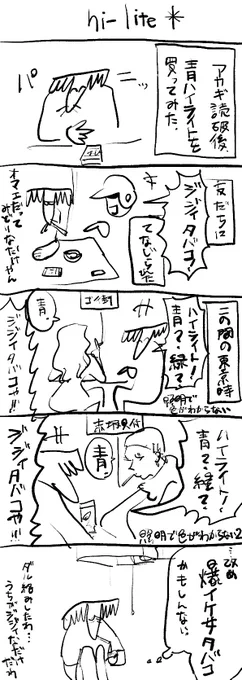 hi-lite*
アカギ読破後、
青ハイライトを
買ってみた。
パ
ニ
友だちに
ジジイタバコ!
て
オマエだって
みどりなだけやん
この間の東京時
ハイライト!
青?緑?
照明で
色がわからない
青
ジジイタバコや!!!
ハイライト!
青?緑?
照明で色がわからない2
青
ジジイタバコや!!!
…改め
爆イケサタバコ
かもしんない
ダル絡みしたわ…
うちがジジイなだけ
だわ